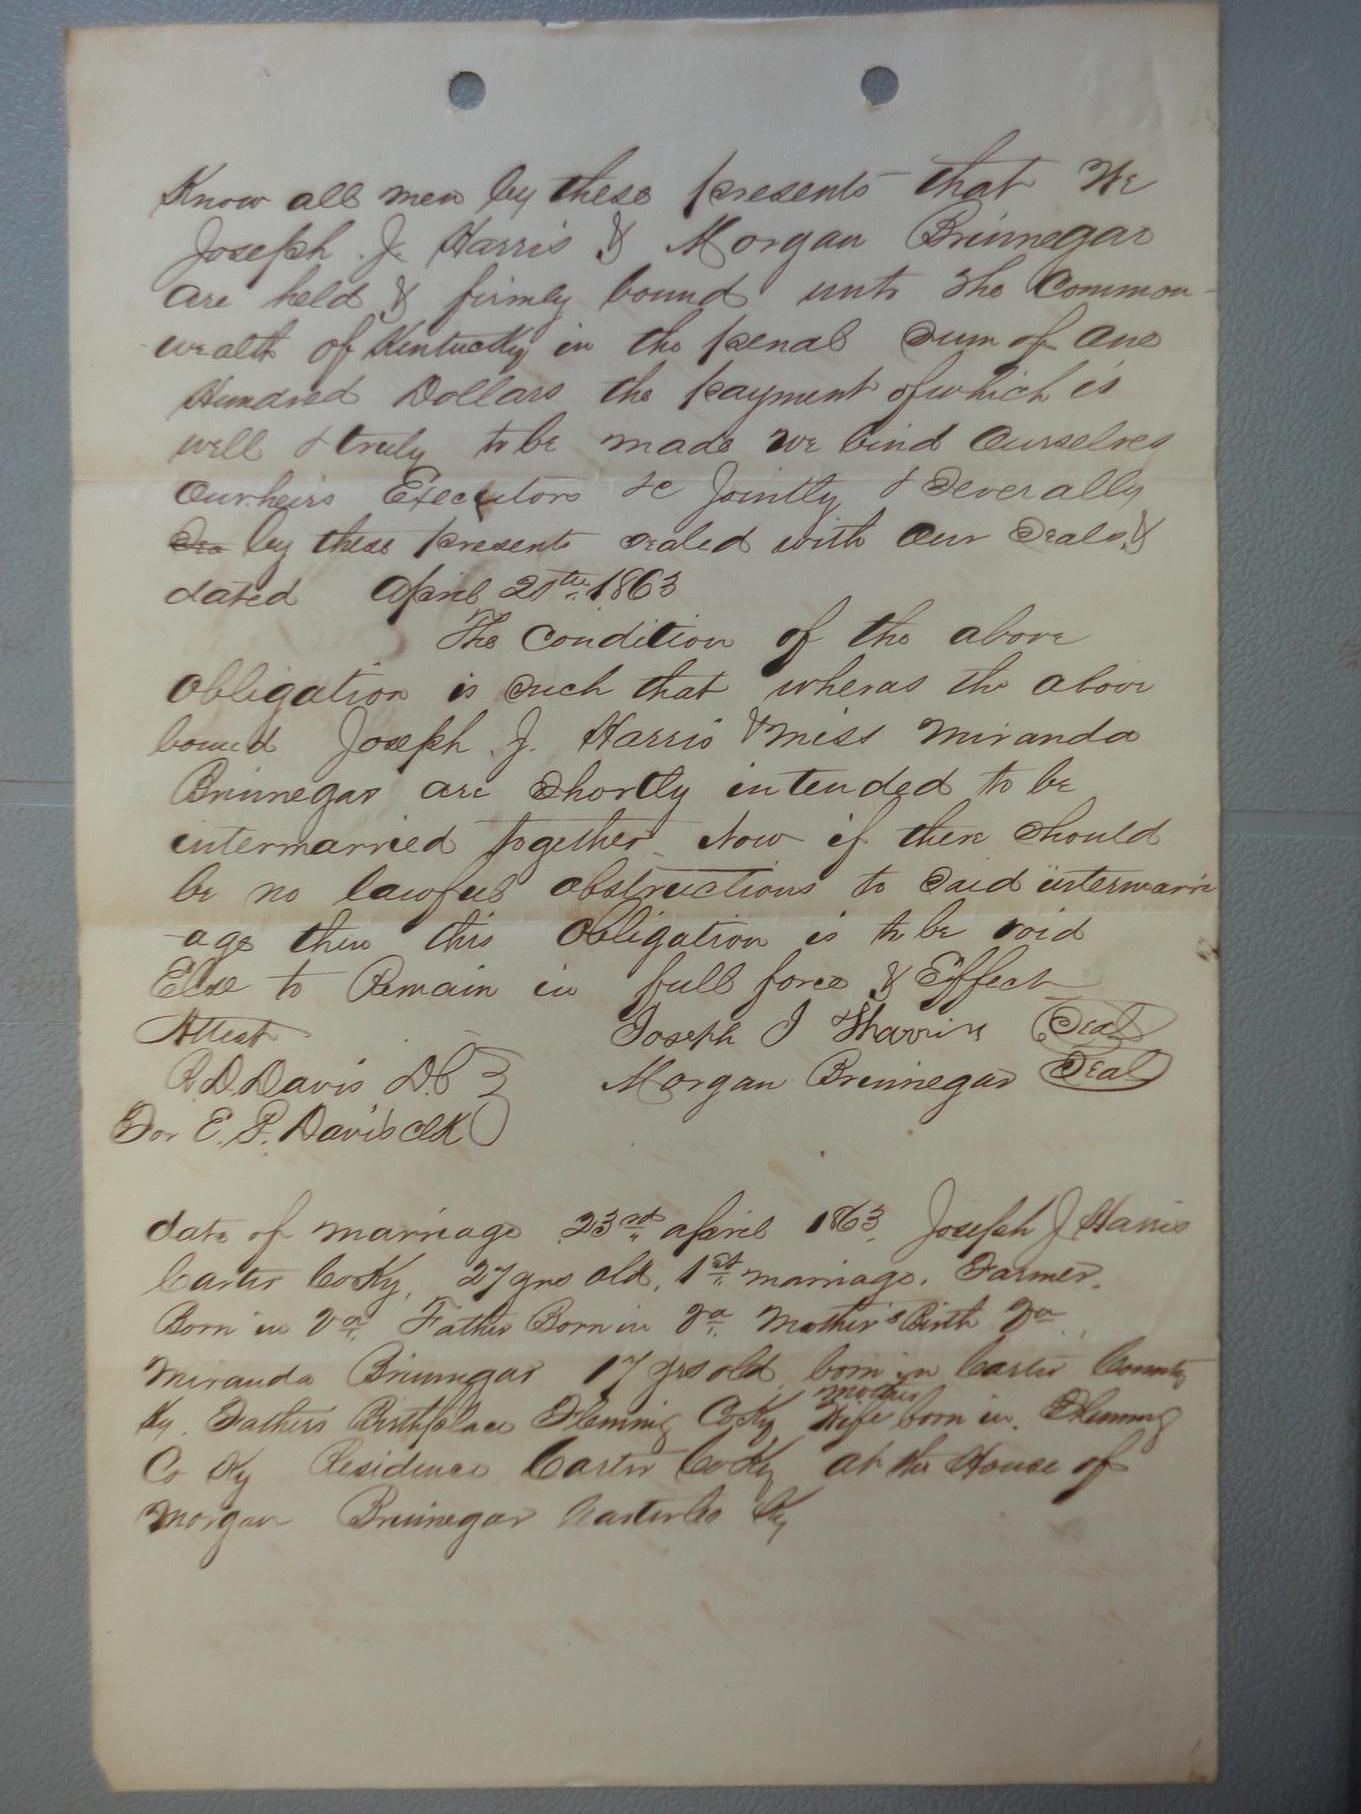 Know all men by these presents that We
Joseph J. Harris & Morgan Brinnegar
are held & firmly bound unto the Common-
wealth of Kentucky in the penal sum of one
Hundred Dollars the payment of which is
well & truly to be made we bind Ourselves
Our heirs Executors &c Jointly & Severally
by these presents sealed with our Seals, &
dated April 20th 1863
The Condition of the above
obligation is such that wheras the above
bound Joseph. J. Harris & Miss Miranda
Brinnegar are Shortly intended to be
intermarried together Now if there Should
be no lawful obstructions to Said intermarri
age then this Obligation is to be void
Else to Remain in full force & Effect
Attest Joseph J Harris Seal
R. D. Davis D.C Morgan Brinnegar Seal
For E. P. Davis clk
date of marriage 23rd april 1863, Joseph J Harris
Carter Co Ky, 27 yrs old, 1st marriage. Farmer.
Born in Va, Father Born in Va, Mother's Birth Va
Miranda Brinnegar 17 yrs old born in Carter County
Ky. Fathers Birthplace Fleming Co Ky, Wife mother born in. Fleming
Co Ky Residence Carter Co Ky at the House of
Morgan Brinnegar Carter Co Ky